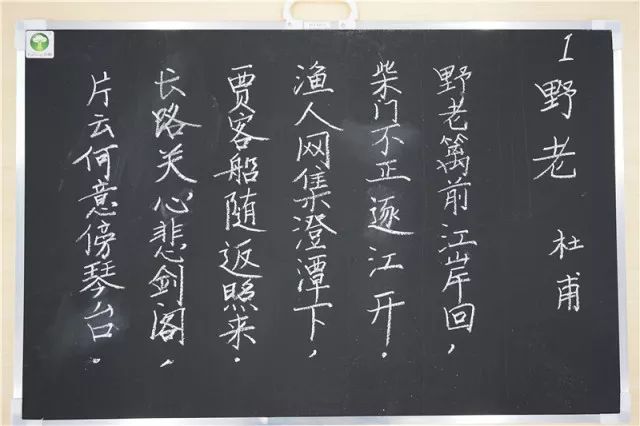 1 野老
杜甫
野老篱前江岸回，
柴门不正逐江开.
渔人网集澄潭下，
贾客船随返照来.
长路关心悲剑阁，
片云何意傍琴台.